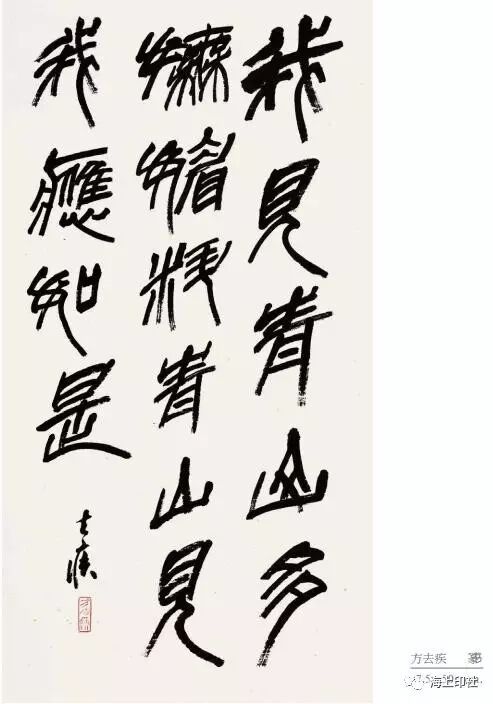 我見青山多
嫵媚料青山見
我應如是
去疾
方去疾
海上印社